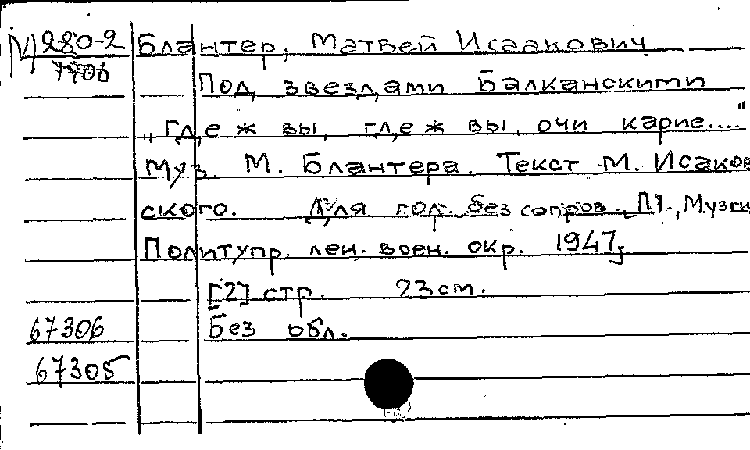 М 280-2 Блантер, Матвей Исаакович
7706 Под звездами Балканскими
"Где ж вы, где ж вы, очи карие...."
Муз. М. Блантера. Текст М. Исаков
ского. Для гол. без сопров., Л., Музги
Политупр. лен. воен. окр. 1947,
[2] стр. 23 см.
67306 Без обл.
67305